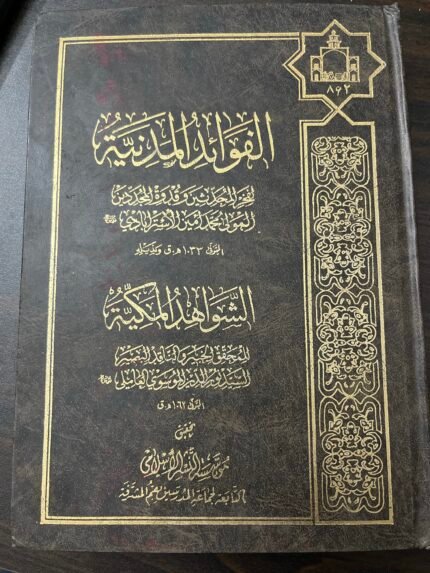 ٨٩٢
الفَوائِدُ المَدَنِيَّة
لفخر المحدثين وقدوة المجددين
المولى محمد أمين الأسترابادي
المتوفى ١٠٣٣ هـ.ق وبذيله
الشَّواهِدُ المَكِّيَّة
للمحقق الخبير والناقد البصير
السيد نور الدين الموسوي العاملي
المتوفى ١٠٦٢ هـ.ق
تحقيق
مؤسسة النشر الإسلامي
التابعة لجماعة المدرسين بقم المشرفة